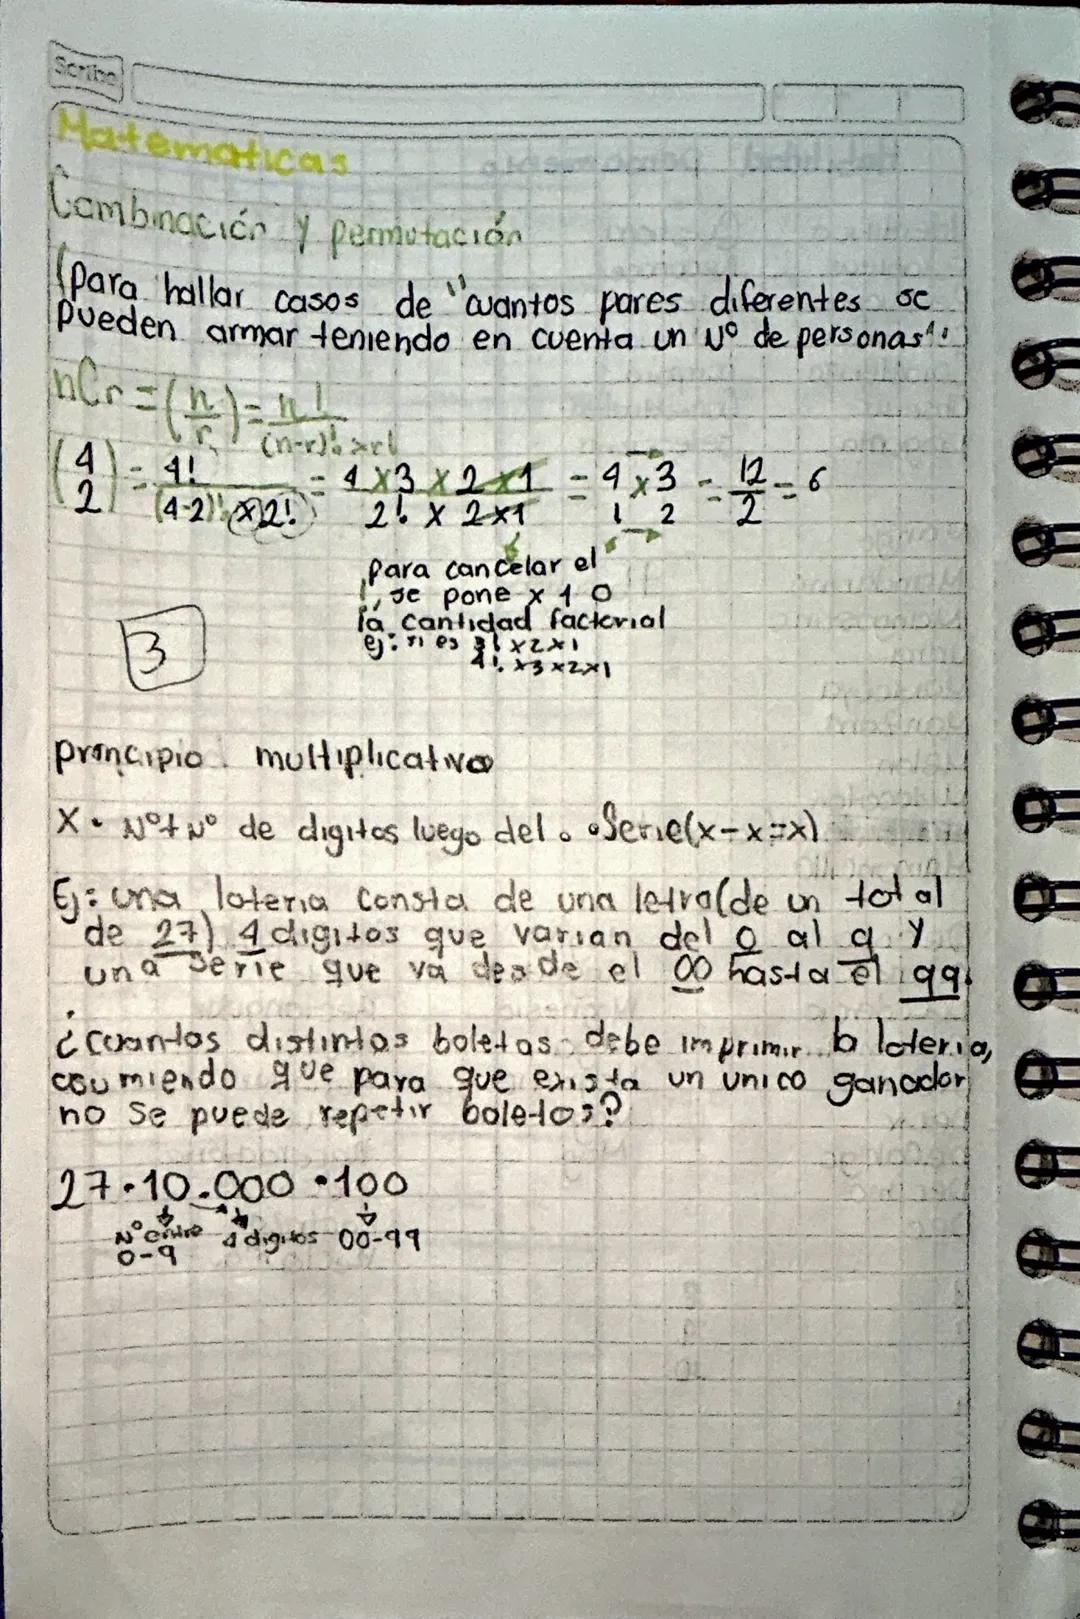 Scribe
Matematicas
Combinación y permutación
(para hallar casos de "cuantos pares diferentes se
pueden armar teniendo en cuenta un Nº de personas".
nCr = (n/r) = n! / (n-r)! x r!
(4 2) = 4! / (4-2)! x 2! = 4 x 3 x 2 x 1 / 2! x 2 x 1 = 4 x 3 / 1 2 = 12 / 2 = 6
para cancelar el
!, se pone x 1 o
la cantidad factorial
ej: si es 3! x2x1
4! x3x2x1
3
principio multiplicativo
X · Nº+Nº de digitos luego del 0 · Serie(x-x=x)
Ej: una loteria consta de una letra(de un total
de 27) 4 digitos que varian del 0 al 9 y
una serie que va desde el 00 hasta el 99.
¿cuantos distintos boletos debe imprimir la loteria,
asumiendo que para que exista un unico ganador
no se puede repetir boletos?
27·10.000·100
Nº entre 4 digitos 00-99
0-9